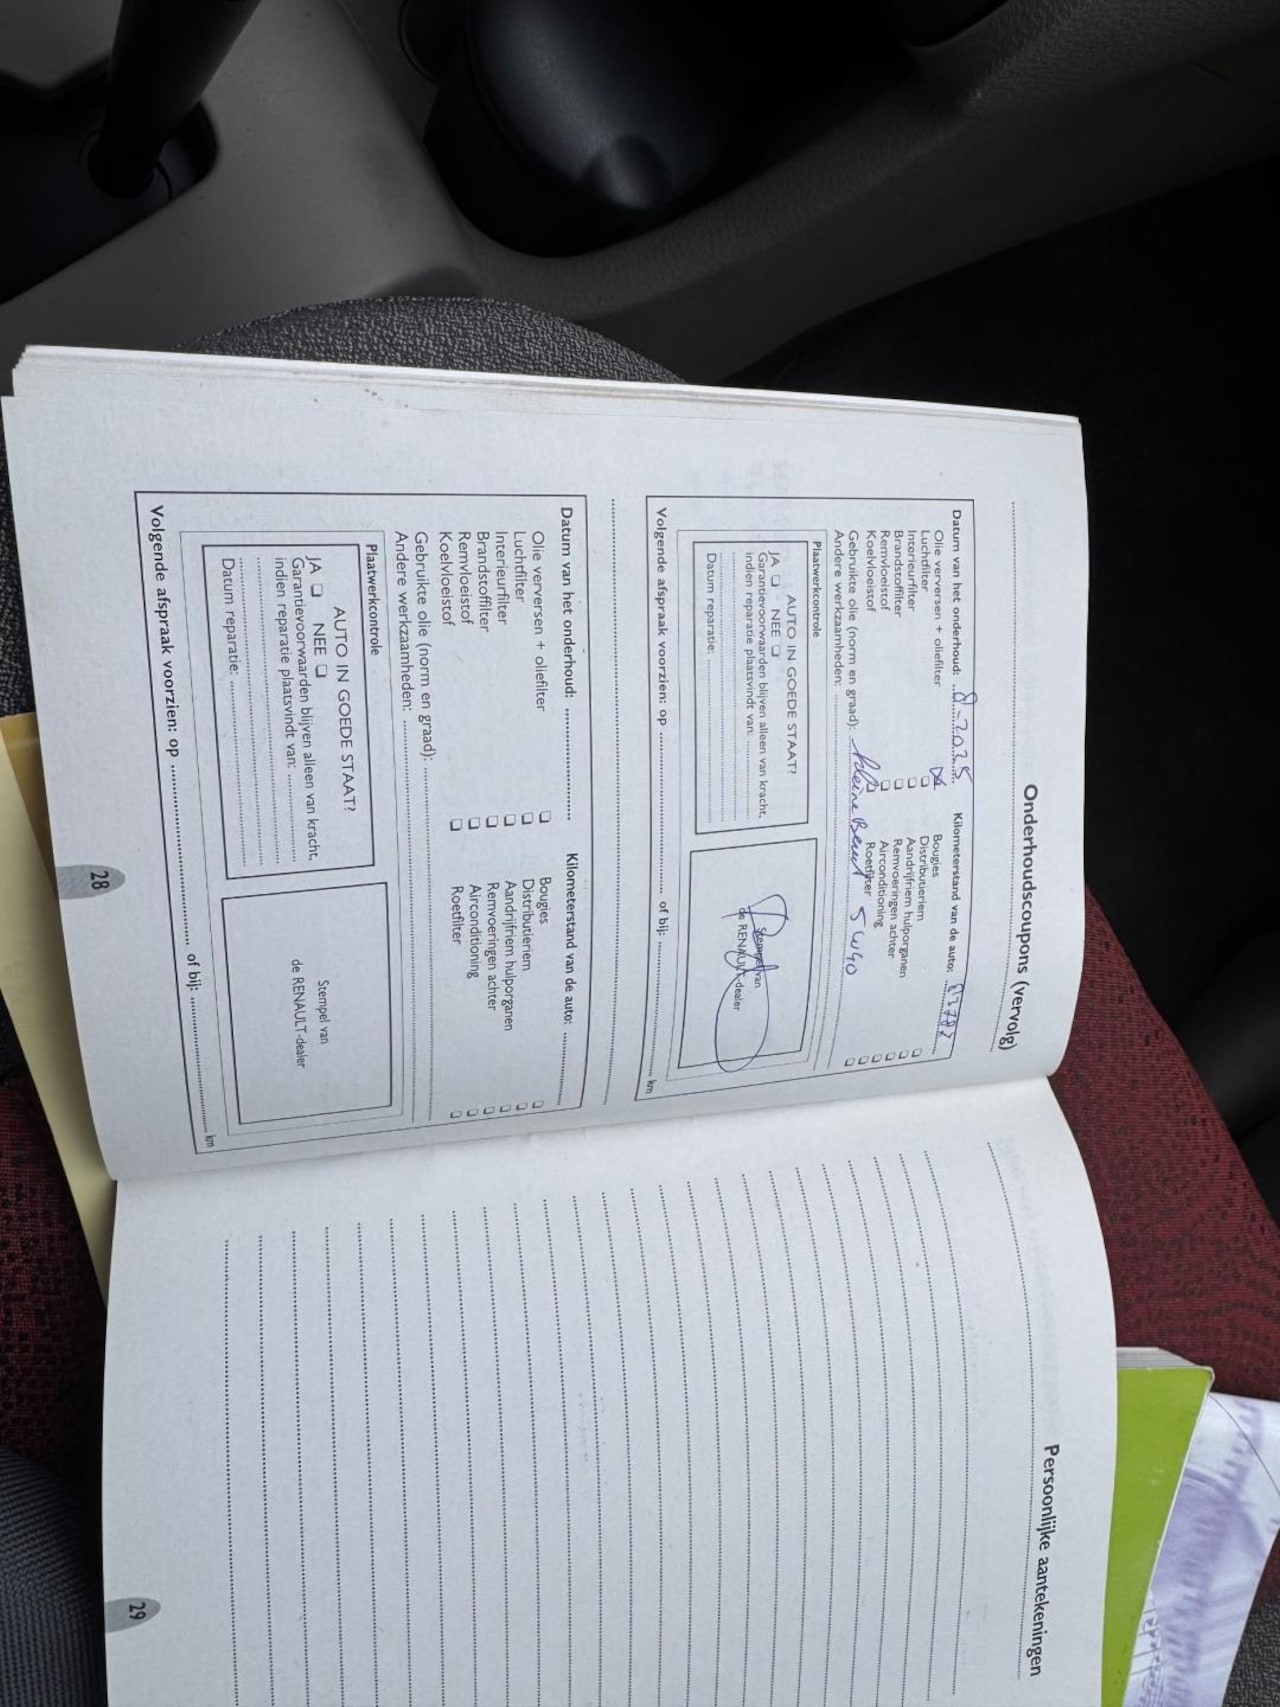 Onderhoudscoupons (vervolg)
Datum van het onderhoud: 8-2025 Kilometerstand van de auto:
Olie verversen + oliefilter Bougies
Luchtfilter Distributieriem
Interieurfilter Aandrijfriem hulporganen
Brandstoffilter Remvoeringen achter
Remvloeistof Airconditioning
Koelvloeistof Roetfilter
Gebruikte olie (norm en graad): kleine Beurt 5W40
Andere werkzaamheden:
Plaatwerkcontrole
AUTO IN GOEDE STAAT?
JA NEE
Garantievoorwaarden blijven alleen van kracht,
indien reparatie plaatsvindt van:
Datum reparatie:
Stempel van
de RENAULT-dealer
Volgende afspraak voorzien: op of bij: km
Datum van het onderhoud: Kilometerstand van de auto:
Olie verversen + oliefilter Bougies
Luchtfilter Distributieriem
Interieurfilter Aandrijfriem hulporganen
Brandstoffilter Remvoeringen achter
Remvloeistof Airconditioning
Koelvloeistof Roetfilter
Gebruikte olie (norm en graad):
Andere werkzaamheden:
Plaatwerkcontrole
AUTO IN GOEDE STAAT?
JA NEE
Garantievoorwaarden blijven alleen van kracht,
indien reparatie plaatsvindt van:
Datum reparatie:
Stempel van
de RENAULT-dealer
Volgende afspraak voorzien: op of bij: km
28
Persoonlijke aantekeningen
29